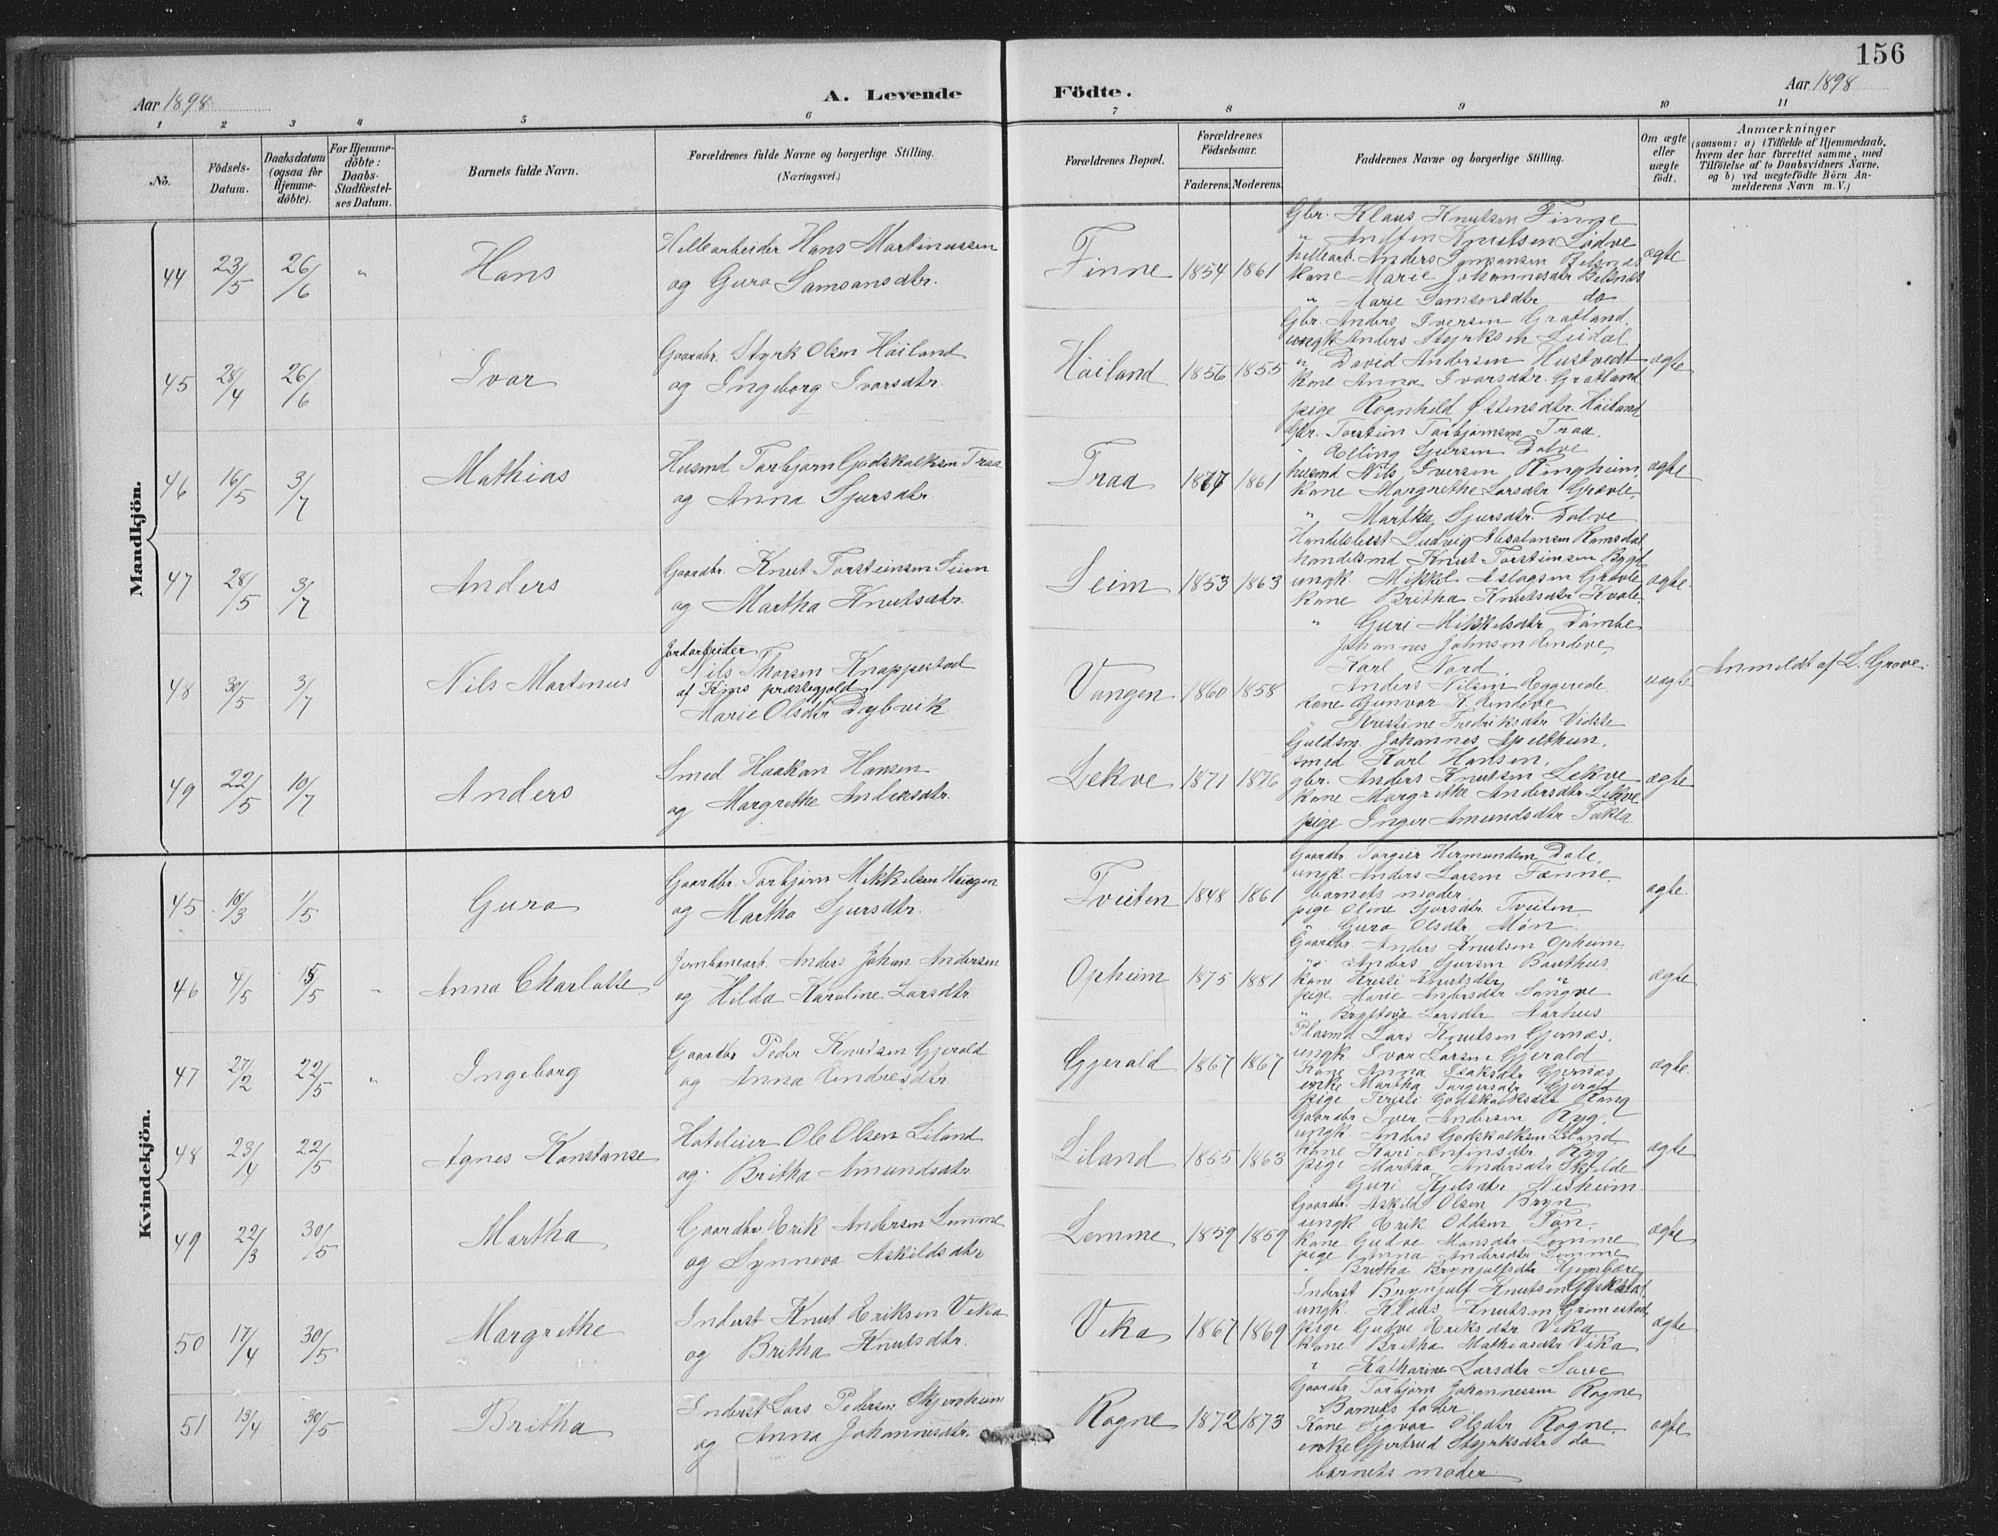 156
Aar 1898
A. Levende
Födte.
Aar 1898
1 2 3 4 5 6 7 8 9 10 11
No.
Födsels-Datum.
Daabsdatum (ogsaa for Hjemme-döbte).
For Hjemme-döbte: Daabs-Stadfæstel-ses Datum.
Barnets fulde Navn.
Forældrenes fulde Navne og borgerlige Stilling. (Næringsvei.)
Forældrenes Bopæl.
Forældrenes Födselsaar.
Faderens. Moderens.
Faddernes Navne og borgerlige Stilling.
Om ægte eller uægte födt.
Anmærkninger
(saasom: a) i Tilfælde af Hjemmedaab, hvem der har forrettet samme, med Tilföielse af to Daabsvidners Navne, og b) ved uægtefödte Börn An-melderens Navn m. V.)
Mandkjön.
44 23/5 26/6 " Hans
Hellearbeider Hans Martinussen
og Guro Samsonsdtr.
Finne 1854 1861
Gbr. Klaus Knutsen Finne
" Knutsen Lødve
hellearb. Anders Samsonsen
kone Marie Johannesdtr
" Marie Samsonsdtr do
ægte
45 28/4 26/6 Ivar
Gaardbr. Styrk Olsen Høiland
og Ingeborg Ivarsdtr.
Høiland 1856 1855
Gbr. Anders Iversen Gratland.
ungk Anders Styrksen
" David Andersen Hustvedt
kone Anna Ivarsdtr. Gratland
pige Ragnhild Østensdtr. Høiland
ægte
46 16/5 3/7 Mathias
Husmd Torbjørn Godskalksen Traa
og Anna Sjursdtr
Traa 1861
Gbr. Torstein Torbjørnsen Traa,
" Elling Sjursen Dolve
husmd Nils Iversen Ringheim,
kone Margrethe Larsdtr Grovle,
" Martha Sjursdtr. Dolve
ægte
47 28/5 3/7 Anders
Gaardbr. Knut Torsteinsen Seim
og Martha Knutsdtr.
Seim 1853 1863
Handelsbest Ludvig Absalonsen Ramsdal
handelsmd Knut Torsteinsen Bygd
ungk. Mikkel Aslagsen Grovle
kone Britha Knutsdtr Kvale.
" Guri Mikkelsdtr Dømbe
ægte
48 30/5 3/7 Nils Martinus
Jordarbeider
Nils Thorsen Knappestad
af Finø præstegjeld
Marie Olsdtr Dybvik
Vangen 1860 1858
Johannes Johnsen Rendeve,
Karl Nord,
Anders Nilsen Eggerede
kone Gunvor K. Rendeve
" Kristine Fredriksdtr
uægte
Anmeldt af L. Grove.
49 22/5 10/7 Anders
Smed Haakon Hansen
og Margrethe Andersdtr.
Lekve 1871 1876
Guldsm. Johannes Spilthun,
smed Karl Hansen,
gbr. Anders Knutsen Lekve
kone Margrethe Andersdtr Lekve
pige Inger Amundsdtr Takla
ægte
Kvindekjön.
45 10/3 1/5 Guro
Gaardbr. Torbjørn Mikkelsen Haugen
og Martha Sjursdtr.
Tveiten 1848 1861
Gaardbr. Torgier Hermundsen Dale,
ungk. Anders Larsen Fenne,
barnets moder,
pige Oline Sjursdtr Tveiten
" Guro Olsdtr. Møn.
ægte.
46 4/5 15/5 " Anna Charlotte
Jernbanearb. Anders Johan Andersen
og Hilda Karoline Larsdtr
Opheim 1875 1881
Gaardbr. Anders Knutsen Opheim.
" Anders Sjursen Bauthus
kone Kristi Knutsdtr "
pige Marie Andersdtr Sangve
" Brytteva Larsdtr Aarhus
ægte
47 27/2 22/5 " Ingeborg
Gaardbr Peder Knudsen Gjerald
og Anna Endresdtr
Gjerald 1867 1867
Plasmd Lars Knutsen Gjernæs,
ungk. Ivar Larsen Gjerald
kone Anna Isaksdtr Gjernæs
enke Martha Torgersdtr Gjerald
pige Kristi Godskalksdtr Ring
ægte.
48 23/4 22/5 Agnes Konstanse
Hoteleier Ole Olsen Liland
og Britha Amundsdtr
Liland 1855 1863
Gaardbr Iver Andersen Ryg,
ungk. Anders Godskalksen Liland
kone Kari Anfinsdtr Ryg
pige Martha Andersdtr Skjelde
" Guri Kjelsdtr Nesheim.
ægte
49 22/3 30/5 Martha
Gaardbr Erik Andersen Lemme
og Synneva Askildsdtr
Lemme 1859 1859
Gaardbr. Askild Olsen Bryn
ungk Erik Oddsen Tøn,
kone Gudve Monsdtr Lemme
pige Anna Andersdtr Lemme
" Britha Brynjulfsdtr
ægte
50 17/4 30/5 Margrethe
Inderst Knut Eriksen Veka
og Britha Knutsdtr.
Veka 1867 1869
Inderst Brynjulf Knutsen
ungk. Klaus Knutsen Grimestad
pige Gudve Eriksdtr Veka
kone Britha Mathiasdtr Veka
" Katharine Larsdtr Save
ægte
51 13/4 30/5 Britha
Inderst Lars Pedersen Skjerheim
og Anna Johannesdtr.
Rogne 1872 1873
Gaardbr Torbjørn Johannessen Rogne
Barnets fader
Kone Sigvor Olsdtr Rogne,
enke Gjertrud Styrksdtr do
barnets moder
ægte